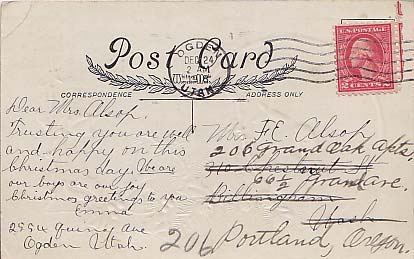 Post Card
OGDEN
DEC 24
2 AM
UTAH
U.S. POSTAGE
2 CENTS 2
CORRESPONDENCE
ADDRESS ONLY
Dear Mrs. Alsop,
Trusting you are well
and happy on this
Christmas day. We are
our boys are our joy
Christmas greetings to you
Emma
Quincy Ave
Ogden Utah.
Mrs. F.E. Alsop
206 Grand Oak Apts
210 Chestnut St
66 1/2 Grand Ave.
Bellingham
Wash
206 Portland, Oregon.